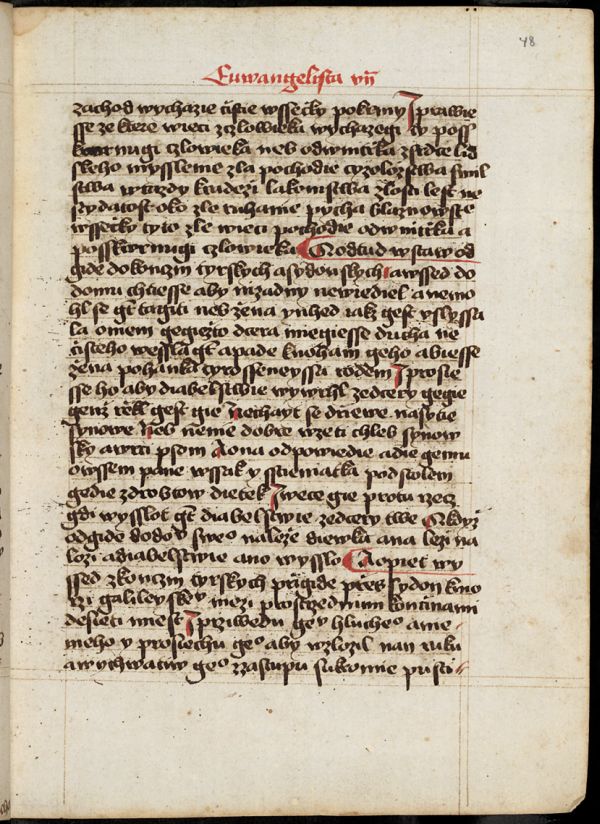 48
Euwangelista vii
zachod wychazie cistie wssecky pokrmy I prawie
sse ze ktere wieci zczlowieka wychazegi ty poss
nugi czlowieka neb odwnitrka zsrdce lid
skeho myssleme zla pochodie cyzolozstwa smil
stwa wrazdy kradezi lakomstwa zlosti lest ne
stydatost oko zle ruhanie pycha blaznowstie
wssecky tyto zle wieci pochodie odwnitrka a
posskwrnugi czlowieka A odtud wstaw od
gide dokonczin tyrskych asydonskych awssed do
domu chtiesse aby nizadny newiediel anemo
hl se gt tagiti neb zena ynhed iakz gest vslyssa
la onem gegiezto dcera miegiesse ducha ne
cisteho wessla gt apade knoham geho abiesse
zena pohanka tyro sseneyssa rodem I prosie
sse ho aby diabelstwie wywrhl zedcery gegie
genz rekl gest gie Nechayt se drziewe nasytie
synowe Neb nenie dobre wzieti chleb synow
sky awrci psom Aona odpowiedie adie gemu
owssem pane wssak y sscienatka podstolem
gedie zdrobtow dietek I wece gie protu rzecz
gdi wysslot gt diabelstwie zedcery twe A kdyz
odgide dodo v sweo naleze diewku ana lezi na
lozi adiabelstwie ano wysslo A opiet wy
ssed zkonczin tyrskych prigide pres sydon kmo
rzi galileyskey mezi prostrzednimi koncinami
desieti miest I prziwedu gey hlucheo ane
meho y prosiechu geo aby wzlozil nan ruku
awychwatiw geo zzastupu sukromie pusti